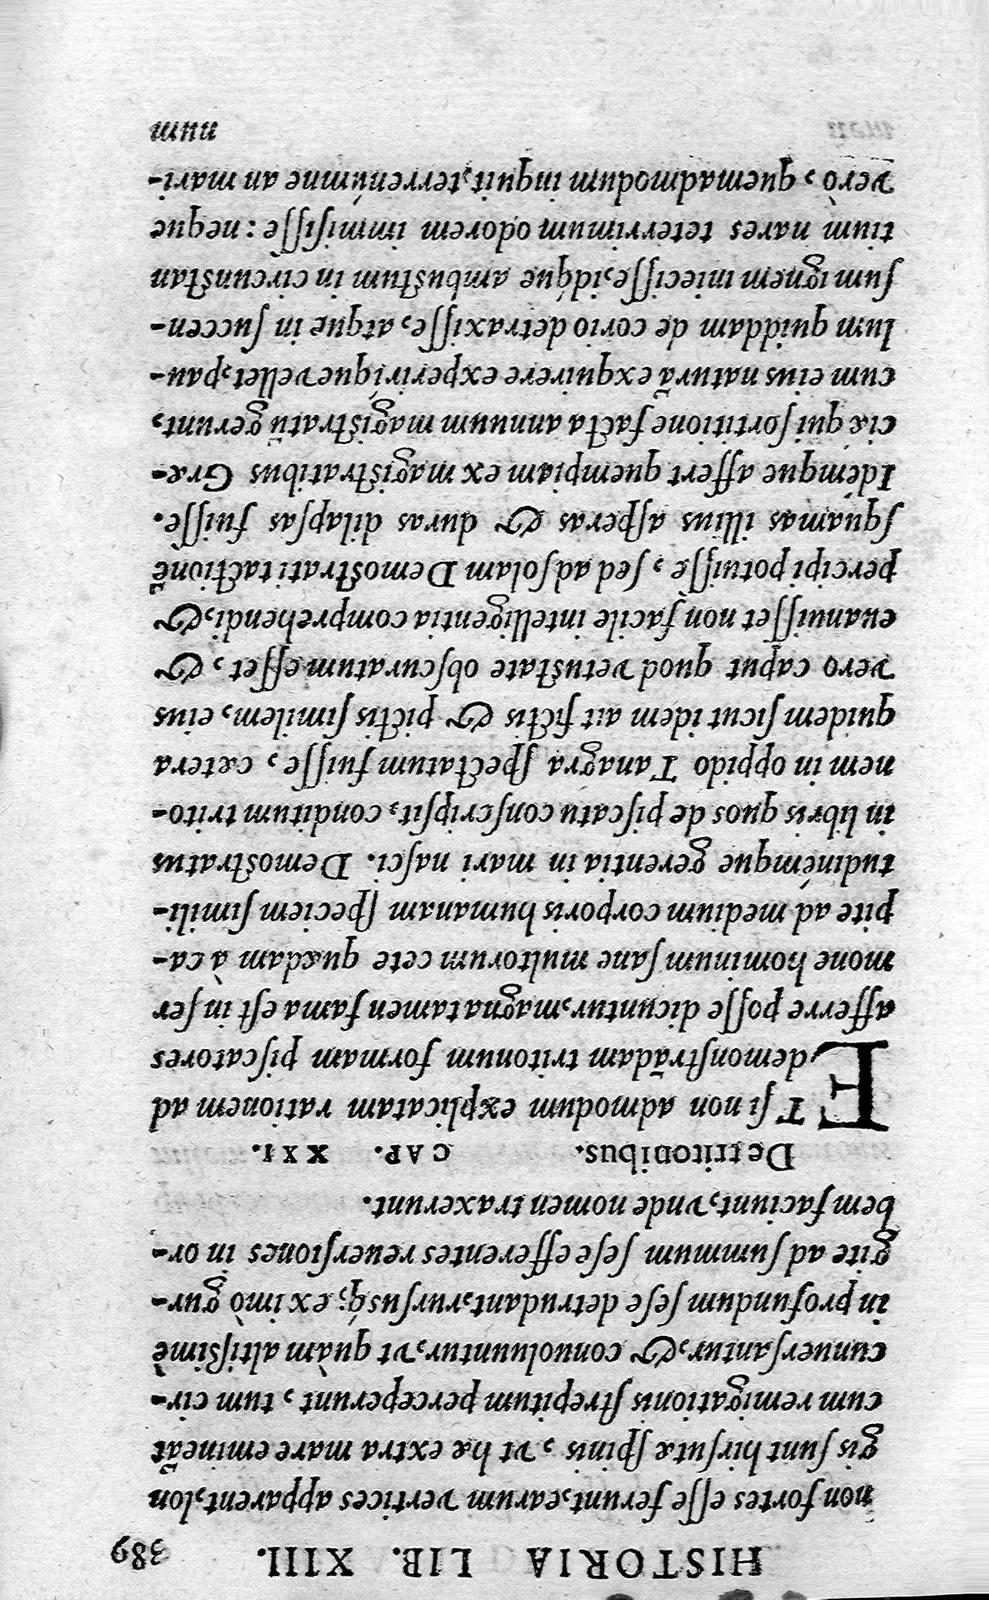 HISTORIA LIB. XIII. 389
non fortes esse ferunt, earum vertices apparent, lon
gis sunt hirsutæ spinis, vt hæ extra mare emineãt
cum remigationis strepitum perceperunt, tum cir-
cunuersantur, & conuoluuntur, vt quàm altißimè
in profundum sese detrudant, rursusq́; ex imò gur-
gite ad summum sese efferentes reuersiones in or-
bem faciunt, vnde nomen traxerunt.
De tritonibus. CAP. XXI.
ETsi non admodum explicatam rationem ad
demonstrãdam tritonum formam piscatores
afferre posse dicuntur, magna tamen fama est in ser
mone hominum sane multorum cete quædam à ca-
pite ad medium corporis humanam speciem simili-
tudinémque gerentia in mari nasci. Demostratus
in libris quos de piscatu conscripsit, conditum trito-
nem in oppido Tanagra spectatum fuisse, cætera
quidem sicut idem ait fictis & pictis similem, eius
vero caput quod vetustate obscuratum esset, &
euanuisset non facile intelligentia comprehendi, &
percipi potuisse, sed ad solam Demostrati tactionẽ
squamas illius asperas & duras dilapsas fuisse.
Idémque affert quempiam ex magistratibus Græ-
ciæ qui sortitione facta annuum magistratũ gerunt,
cum eius naturã exquirere experiríque vellet, pau-
lum quiddam de corio detraxisse, atque in succen-
sum ignem iniecisse, idque ambustum in circunstan
tium nares teterrimum odorem immisisse: neque
verò, quemadmodum inquit, terrenúmne an mari-
num